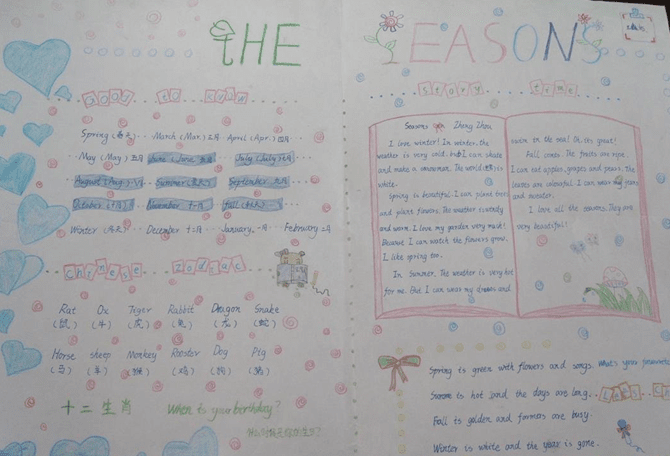 THE SEASONS
good to know
Spring (春天) March (Mar.) 三月 April (Apr.) 四月
May (May) 五月 June (June 六月) July (July) 七月
August (Aug.) 八月 Summer (夏天) September 九月
October 十月 November 十一月 fall (秋天)
Winter (冬天) December 十二月 January 一月 February 二月
Chinese zodiac
Rat Ox Tiger Rabbit Dragon Snake
(鼠) (牛) (虎) (兔) (龙) (蛇)
Horse sheep Monkey Rooster Dog Pig
(马) (羊) (猴) (鸡) (狗) (猪)
十二生肖 When is your birthday?
story time
Seasons Zhang Zhen
I love winter! In winter, the
weather is very cold. But I can skate
and make a snowman. The world is in
white.
Spring is beautiful. I can plant trees
and plant flowers. The weather is windy
and warm. I love my garden very much!
Because I can watch the flowers grow.
I like spring too.
In Summer. The weather is very hot
for me. But I can wear my dresses and
swim in the sea! Oh, it's great!
Fall comes. The fruits are ripe.
I can eat apples, grapes and pears. The
leaves are colourful. I can wear my jeans
and sweater.
I love all the seasons. They are
very beautiful!
Spring is green with flowers and songs. What's your favourite
Summer is hot and the days are long.
Fall is golden and farmers are busy.
Winter is white and the year is gone.